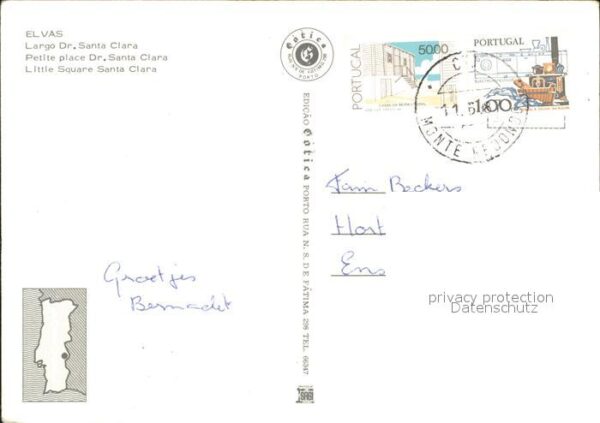 ELVAS
Largo Dr. Santa Clara
Petite place Dr. Santa Clara
Little Square Santa Clara
Gótica
PORTO
EDIÇÃO Gótica PORTO RUA N. S. DE FÁTIMA 218 TEL. 66347
PORTUGAL
50.00
PORTUGAL
1.00
11.
MONTE REDONDO
Fam Beckers
Hort
Ens
Groetjes
Bernadet
privacy protection
Datenschutz